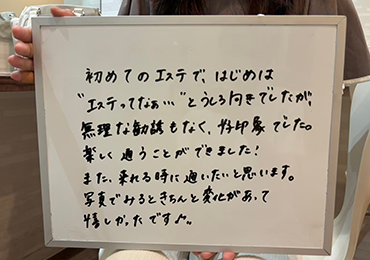 初めてのエステで、はじめは
"エステってなぁ…"とうしろ向きでしたが、
無理な勧誘もなく、好印象でした。
楽しく通うことができました!
また、来れる時に通いたいと思います。
写真でみるときちんと変化があって
嬉しかったです♪。